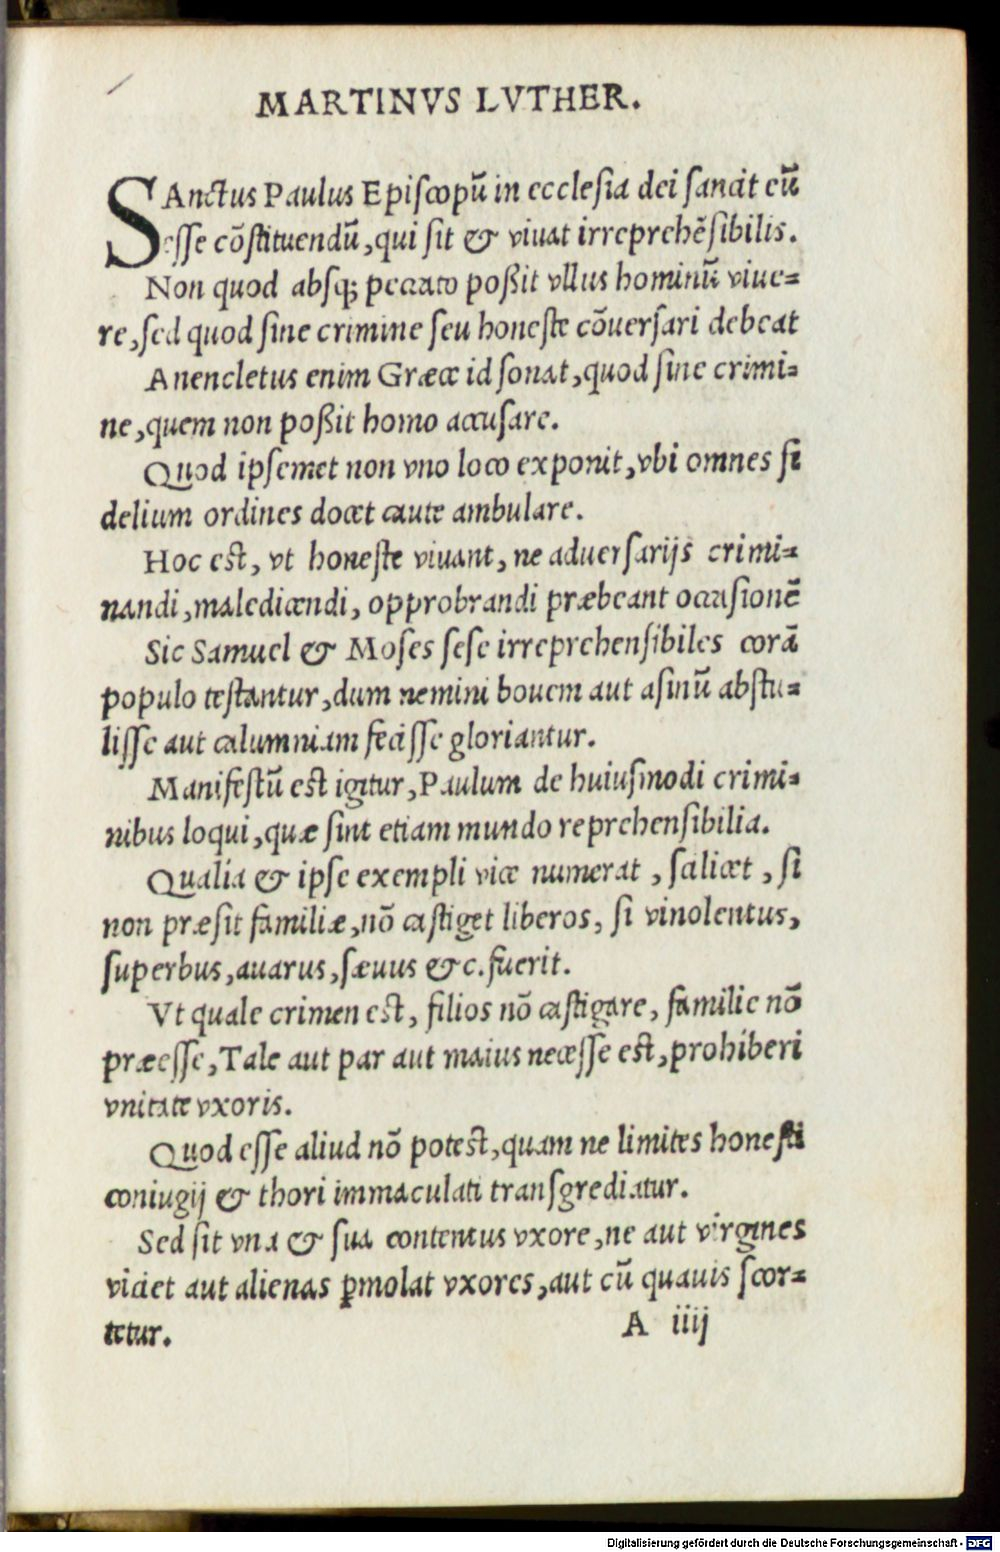 MARTINVS LVTHER.
SAnctus Paulus Episcopũ in ecclesia dei sancit eũ
esse cõstituendũ, qui sit & viuat irreprehẽsibilis.
Non quod absq; peccato poßit vllus hominũ viue=
re, sed quod sine crimine seu honeste cõuersari debeat
Anencletus enim Græce id sonat, quod sine crimi=
ne, quem non poßit homo accusare.
Quod ipsemet non vno loco exponit, vbi omnes fi
delium ordines docet caute ambulare.
Hoc est, vt honeste viuant, ne aduersarijs crimi=
nandi, maledicendi, opprobrandi præbeant occasionẽ
Sic Samuel & Moses sese irreprehensibiles corã
populo testantur, dum nemini bouem aut asinũ abstu=
lisse aut calumniam fecisse gloriantur.
Manifestũ est igitur, Paulum de huiusmodi crimi=
nibus loqui, quæ sint etiam mundo reprehensibilia.
Qualia & ipse exempli vice numerat, scilicet, si
non præsit familiæ, nõ castiget liberos, si vinolentus,
superbus, auarus, sæuus &c. fuerit.
Vt quale crimen est, filios nõ castigare, familie nõ
præesse, Tale aut par aut maius necesse est, prohiberi
vnitate vxoris.
Quod esse aliud nõ potest, quam ne limites honesti
coniugij & thori immaculati transgrediatur.
Sed sit vna & sua contentus vxore, ne aut virgines
viciet aut alienas ꝑmolat vxores, aut cũ quauis scor=
tetur.
A iiij
Digitalisierung gefördert durch die Deutsche Forschungsgemeinschaft - DFG